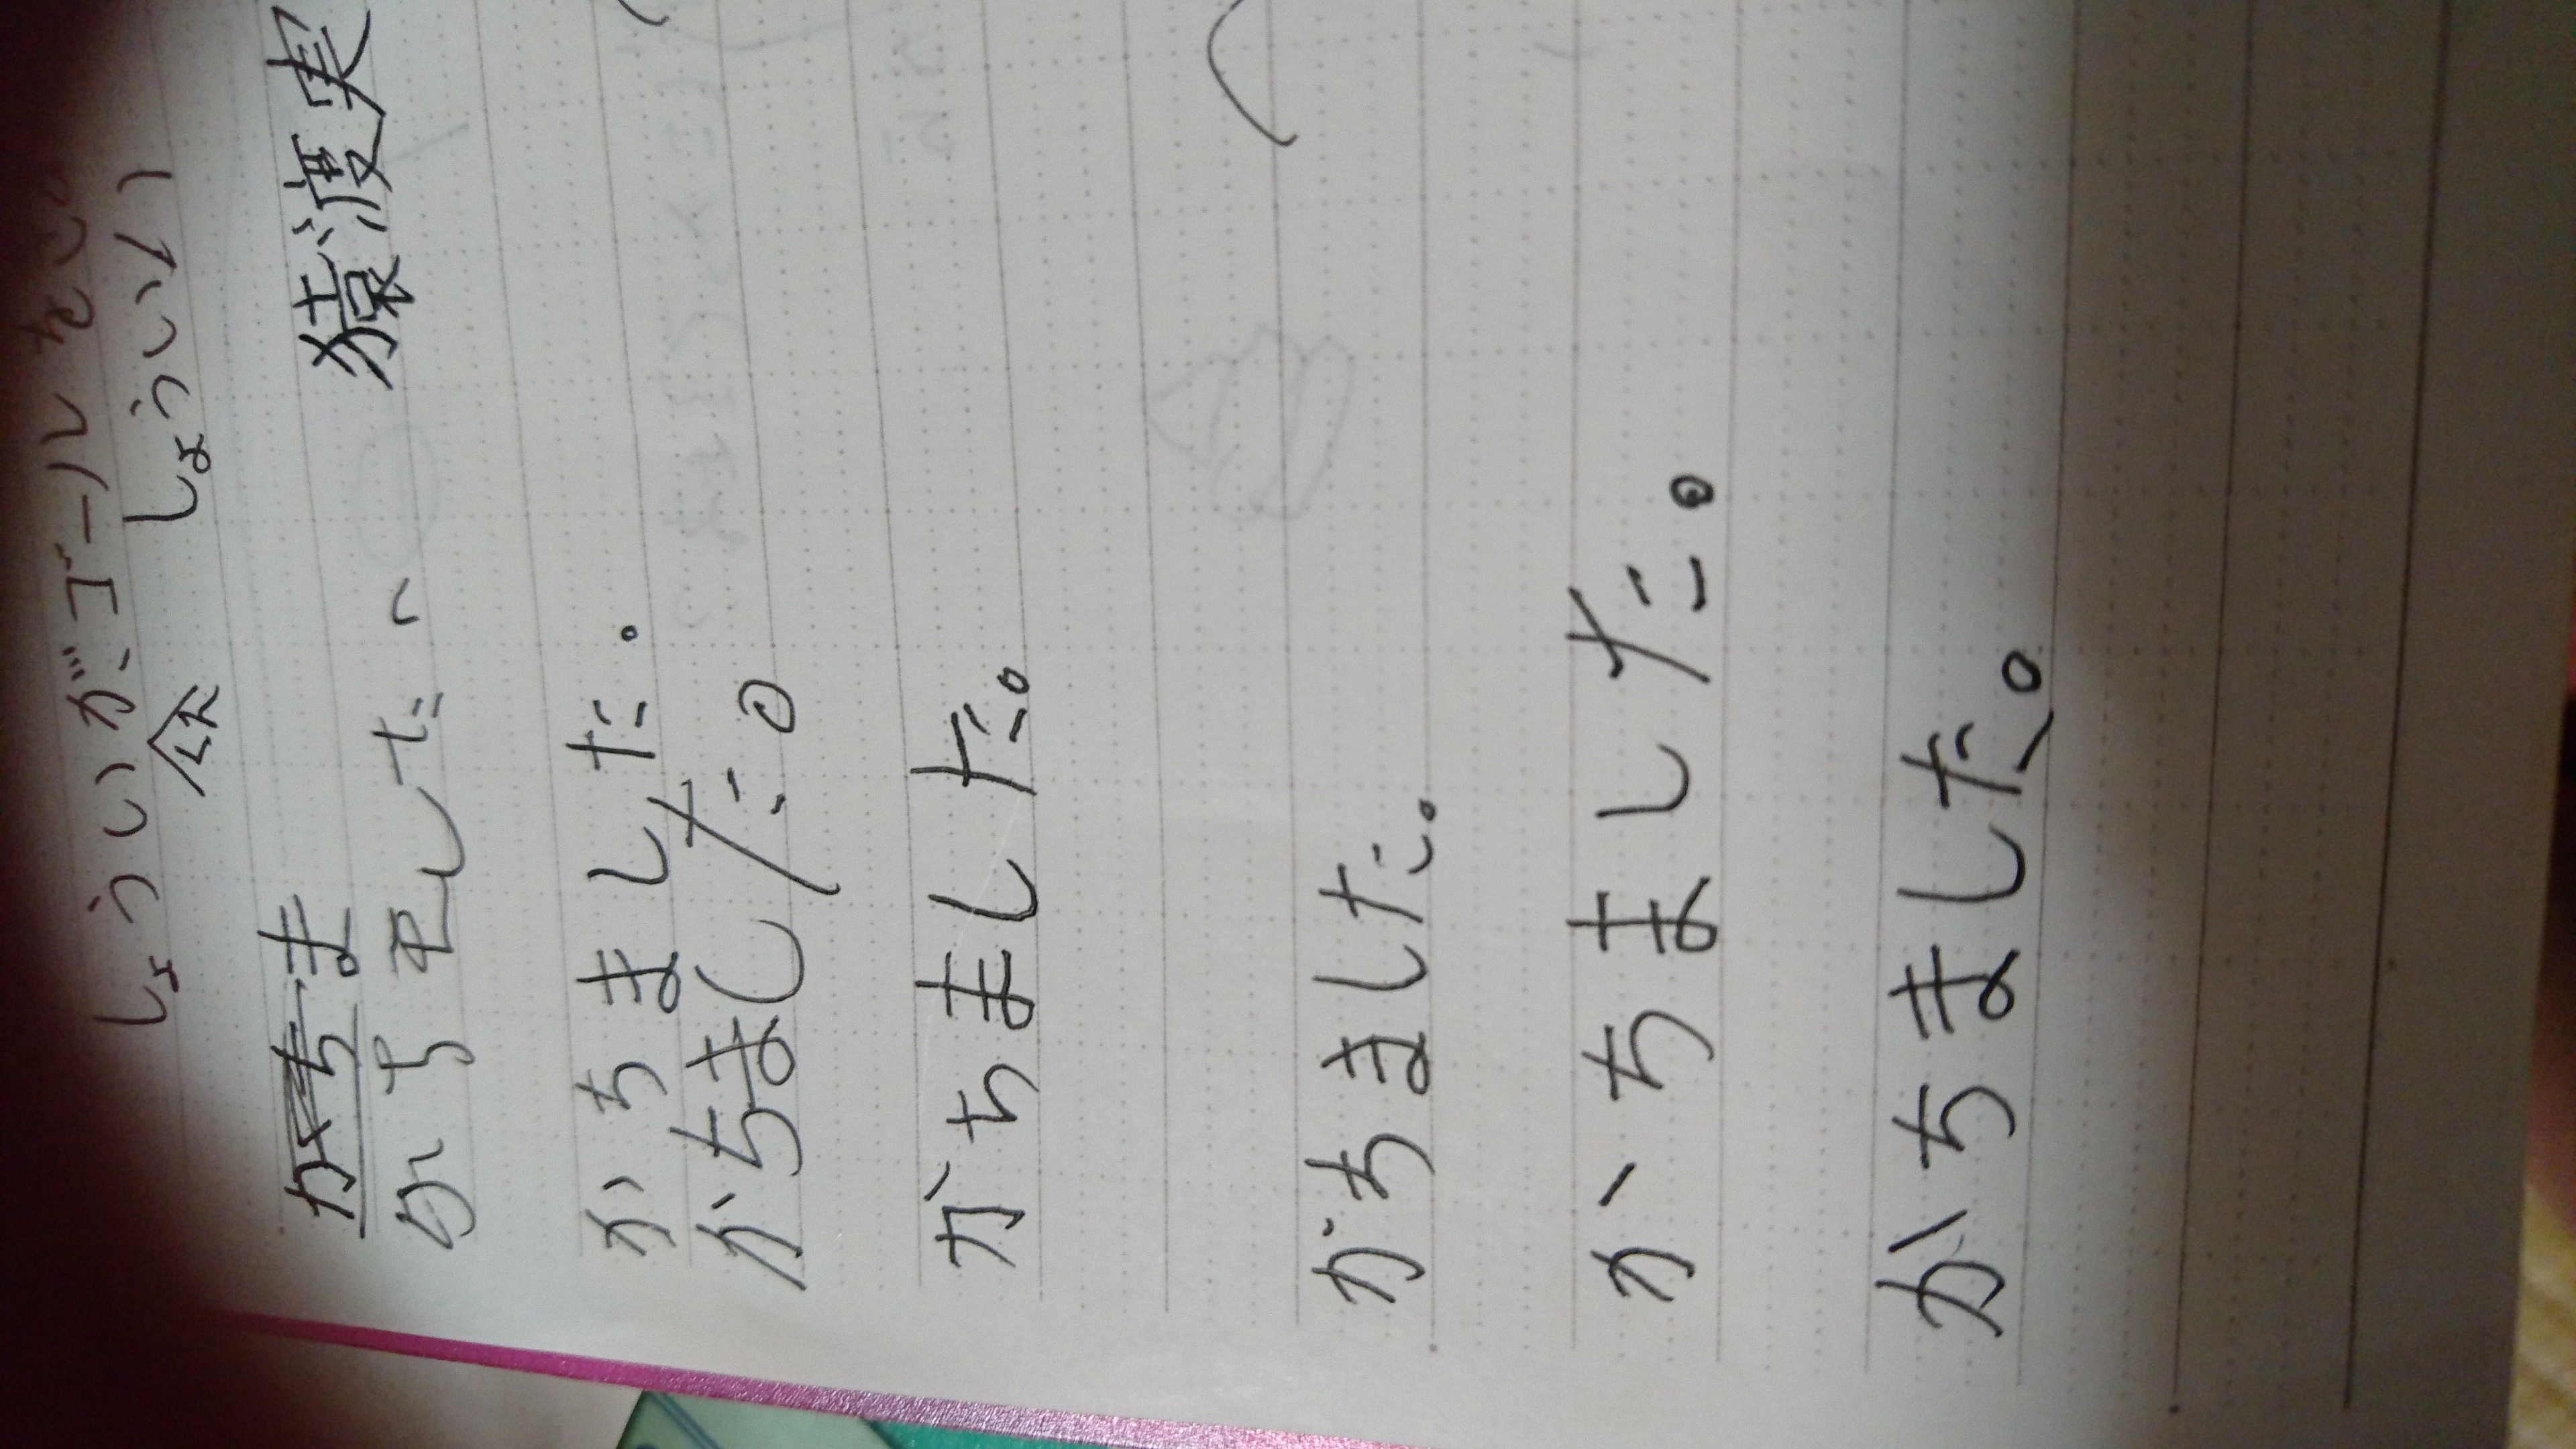 しょういがゴールを
令 しょうい！
かちま 猿渡実
かちました、
かちました。
かちました。
かちました。
かちました。
かちました。
かちました。